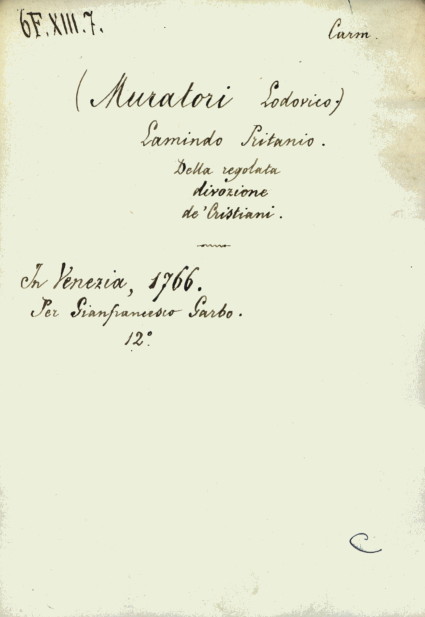 6F.XIII.7.
Carm.
(Muratori Lodovico)
Lamindo Pritanio.
Della regolata
divozione
de' Cristiani.
In Venezia, 1766.
Per Gianfrancesco Garbo.
12°
C